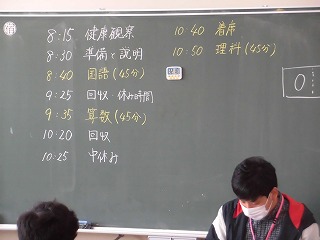 8:15 健康観察
8:30 準備と説明
8:40 国語(45分)
9:25 回収 休み時間
9:35 算数(45分)
10:20 回収
10:25 中休み
10:40 着席
10:50 理科(45分)